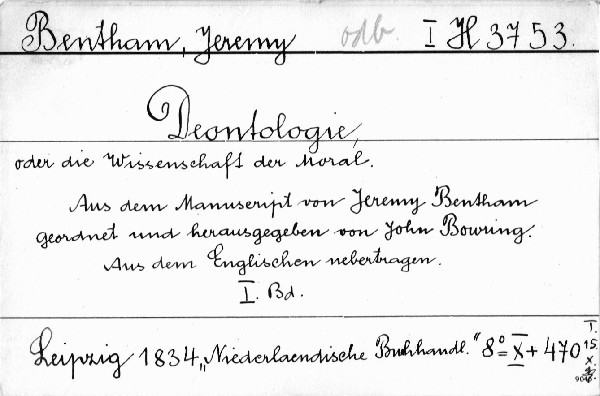 Bentham, Jeremy odb. I H 3753.
Deontologie,
oder die Wissenschaft der Moral.
Aus dem Manuscript von Jeremy Bentham
geordnet und herausgegeben von John Bowring.
Aus dem Englischen uebertragen.
I. Bd.
Leipzig 1834 „Niederlaendische Buchhandl." 8° = X + 470
I.
15.
X